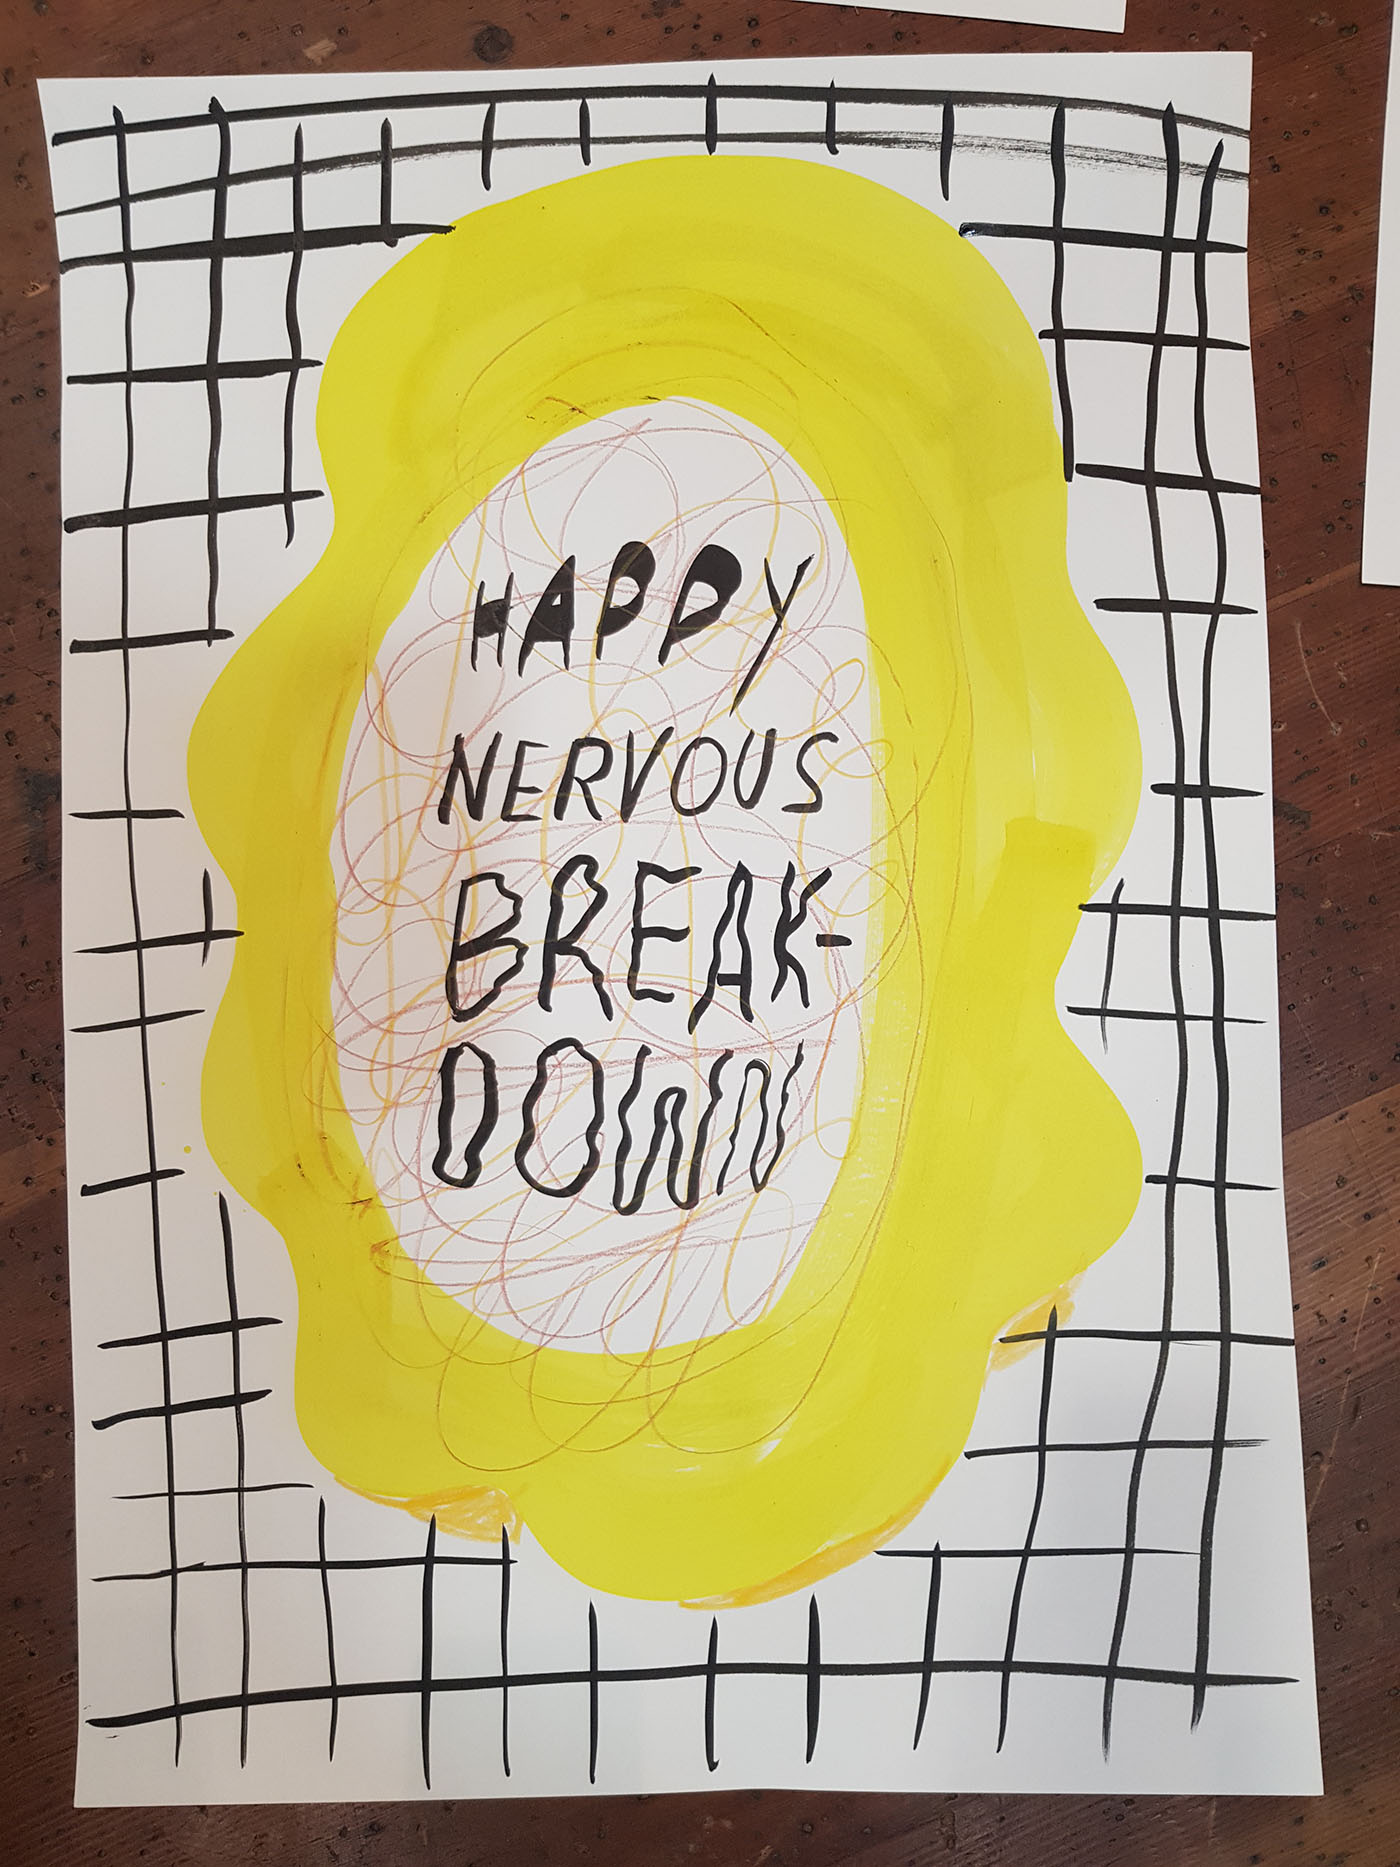 HAPPY
NERVOUS
BREAK-
DOWN